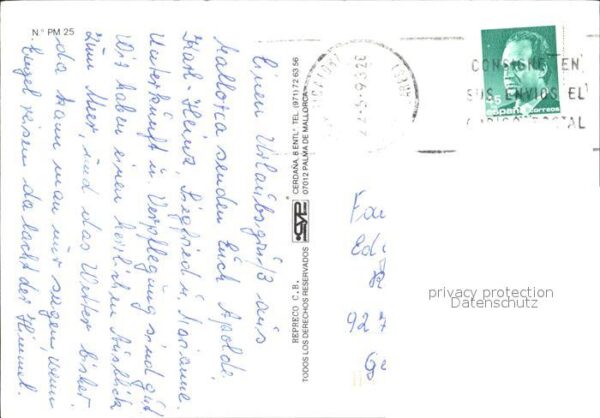 N.º PM 25
Einen Urlaubsgruß aus
Mallorca senden Euch
Karl-Heinz, Siegfried u. Marianne.
Unterkunft u. Verpflegung sind gut
Wir haben einen herrlichen Ausblick
zum Meer, und das Wetter bisher.
da kann man nur sagen, wenn
Engel reisen da lacht der Himmel.
REPRECO C.B.
TODOS LOS DERECHOS RESERVADOS
CERDAÑA, 8 ENTL° TEL. (971) 72 63 56
07012 PALMA DE MALLORCA
CONSIGNE EN
SUS ENVIOS EL
POSTAL
35
España
correos
Fa
Ed
92
Ge
privacy protection
Datenschutz